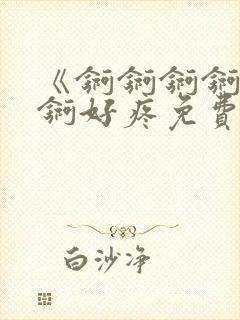 《锕锕锕锕
锕好疼免費
白沙净